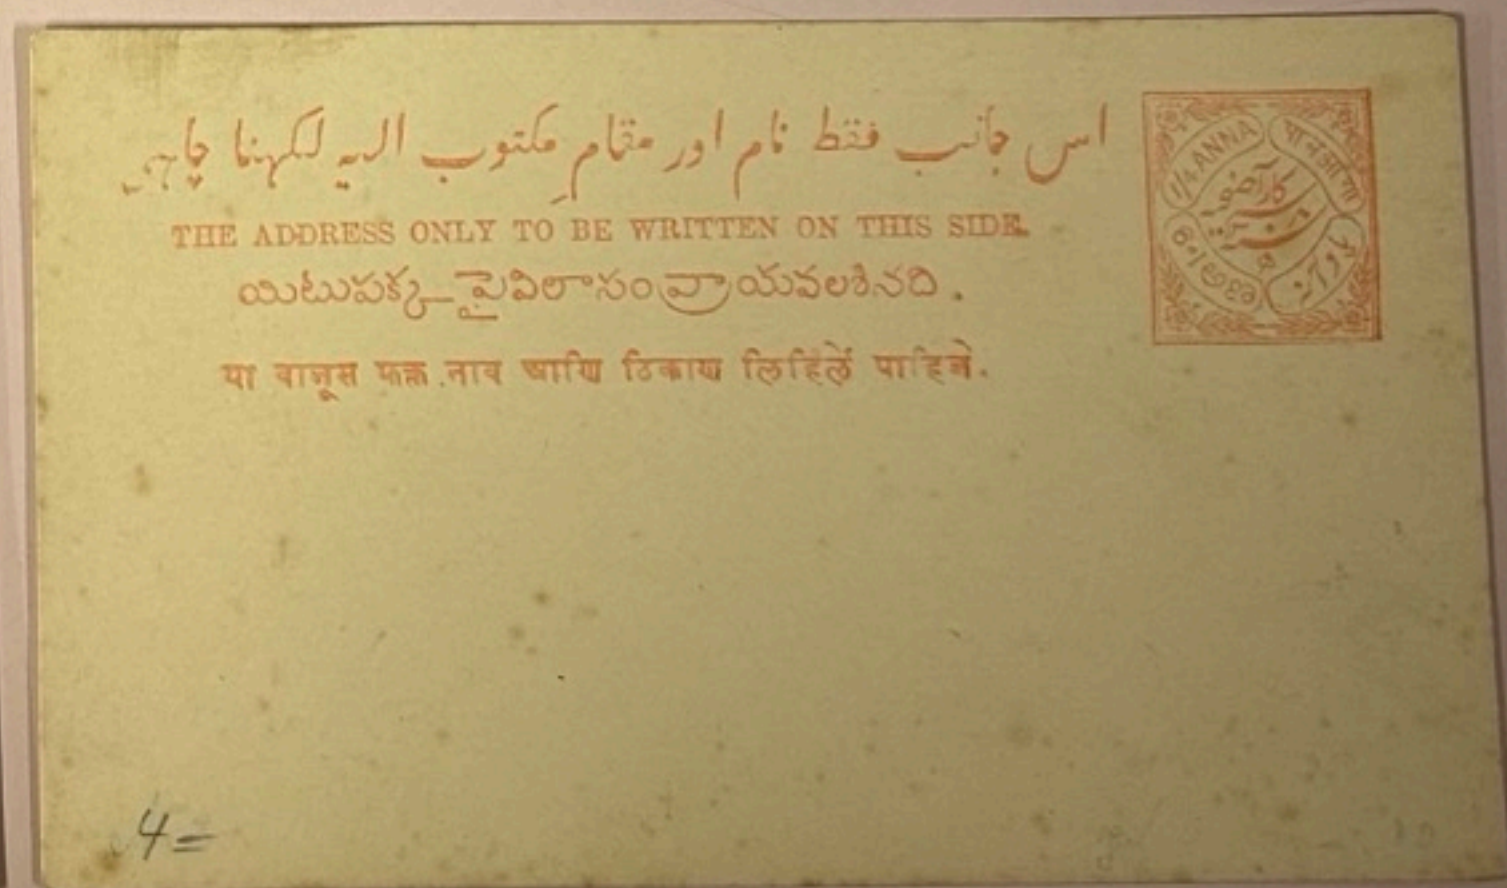 اس جانب فقط نام اور مقام مکتوب الیہ لکہنا چاہئے
THE ADDRESS ONLY TO BE WRITTEN ON THIS SIDE.
యిటుపక్క పైవిలాసం వ్రాయవలశినది.
या बाजूस फक्त नाव आणि ठिकाण लिहिलें पाहिजे.
1/4 ANNA
पाव आणा
پاو آنہ
4=